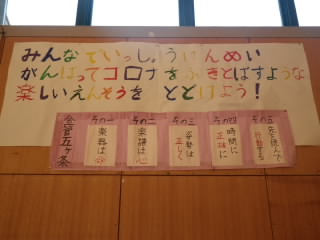 みんなでいっしょうけんめい
がんばってコロナをふきとばすような
楽しいえんそうをとどけよう!
合言五ヶ条
その一
楽器は命
その二
楽譜は心
その三
姿勢は
正しく
その四
時間に
正確に
その五
先を読んで
行動する